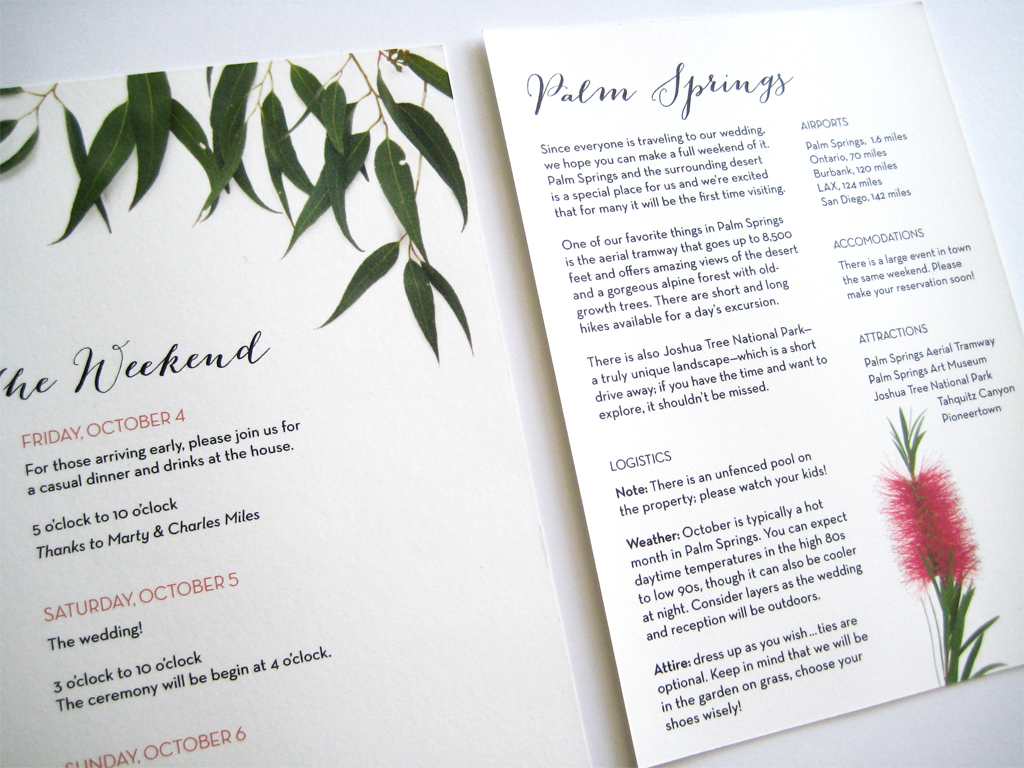 The Weekend
FRIDAY, OCTOBER 4
For those arriving early, please join us for
a casual dinner and drinks at the house.
5 o'clock to 10 o'clock
Thanks to Marty & Charles Miles
SATURDAY, OCTOBER 5
The wedding!
3 o'clock to 10 o'clock
The ceremony will be begin at 4 o'clock.
SUNDAY, OCTOBER 6
Palm Springs
Since everyone is traveling to our wedding,
we hope you can make a full weekend of it.
Palm Springs and the surrounding desert
is a special place for us and we're excited
that for many it will be the first time visiting.
One of our favorite things in Palm Springs
is the aerial tramway that goes up to 8,500
feet and offers amazing views of the desert
and a gorgeous alpine forest with old-
growth trees. There are short and long
hikes available for a day's excursion.
There is also Joshua Tree National Park—
a truly unique landscape—which is a short
drive away; if you have the time and want to
explore, it shouldn't be missed.
LOGISTICS
Note: There is an unfenced pool on
the property; please watch your kids!
Weather: October is typically a hot
month in Palm Springs. You can expect
daytime temperatures in the high 80s
to low 90s, though it can also be cooler
at night. Consider layers as the wedding
and reception will be outdoors.
Attire: dress up as you wish...ties are
optional. Keep in mind that we will be
in the garden on grass, choose your
shoes wisely!
AIRPORTS
Palm Springs, 1.6 miles
Ontario, 70 miles
Burbank, 120 miles
LAX, 124 miles
San Diego, 142 miles
ACCOMODATIONS
There is a large event in town
the same weekend. Please
make your reservation soon!
ATTRACTIONS
Palm Springs Aerial Tramway
Palm Springs Art Museum
Joshua Tree National Park
Tahquitz Canyon
Pioneertown